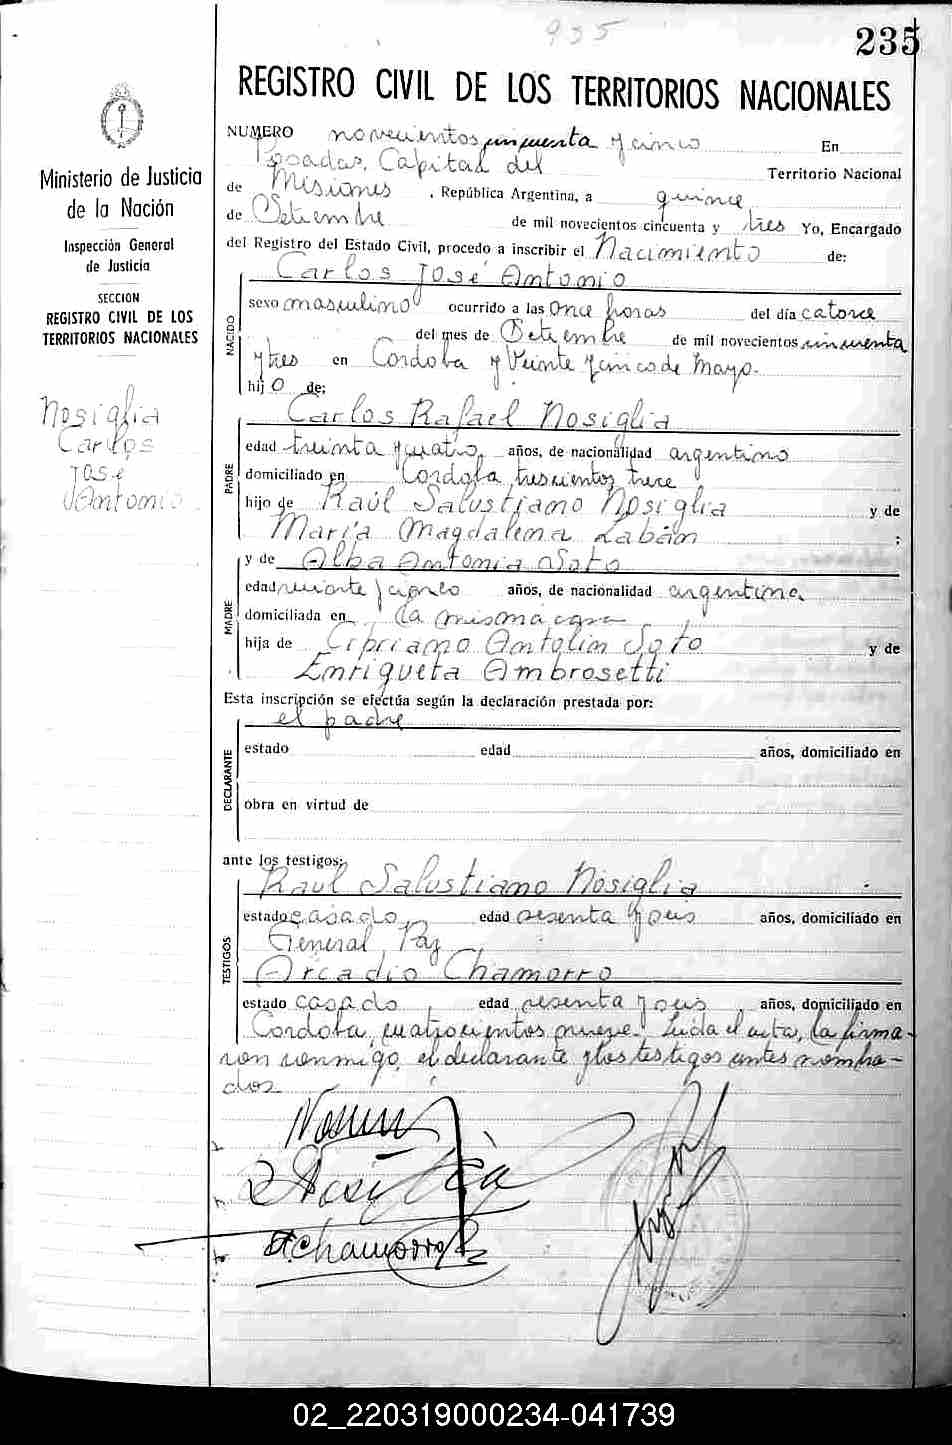 935
235
REGISTRO CIVIL DE LOS TERRITORIOS NACIONALES
Ministerio de Justicia
de la Nación
Inspección General
de Justicia
SECCION
REGISTRO CIVIL DE LOS
TERRITORIOS NACIONALES
Nosiglia
Carlos
José
Antonio
NUMERO novecientos cincuenta y cinco En
Posadas, Capital del Territorio Nacional
de Misiones, República Argentina, a quince
de Setiembre de mil novecientos cincuenta y tres Yo, Encargado
del Registro del Estado Civil, procedo a inscribir el Nacimiento de:
NACIDO
Carlos José Antonio
sexo masculino ocurrido a las once horas del día catorce
del mes de Setiembre de mil novecientos cincuenta
y tres en Cordoba y Veinte y cinco de Mayo.
hijo de:
PADRE
Carlos Rafael Nosiglia
edad treinta y cuatro años, de nacionalidad argentino
domiciliado en Cordoba trescientos trece
hijo de Raúl Salustiano Nosiglia y de
María Magdalena Labán ;
MADRE
y de Alba Antonia Soto
edad veinte y cinco años, de nacionalidad argentina
domiciliada en la misma casa
hija de Cipriano Antolín Soto y de
Enriqueta Ambrosetti
Esta inscripción se efectúa según la declaración prestada por:
DECLARANTE
el padre
estado edad años, domiciliado en
obra en virtud de
ante los testigos:
TESTIGOS
Raúl Salustiano Nosiglia
estado casado edad sesenta y seis años, domiciliado en
General Paz
Arcadio Chamorro
estado casado, edad sesenta y seis años, domiciliado en
Cordoba, cuatrocientos nueve. Leida el acta, la firma-
ron conmigo, el declarante y los testigos antes nombra-
dos
Nosiglia
Chamorro
02_220319000234-041739